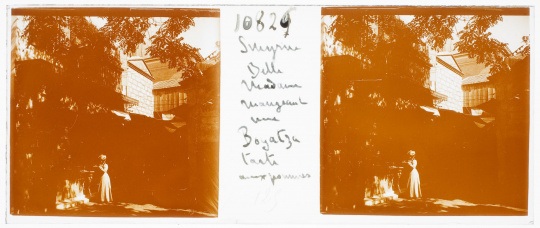 10829
Smyrne
Belle
Madame
mangeant
une
Bogatza
tarte
aux pommes